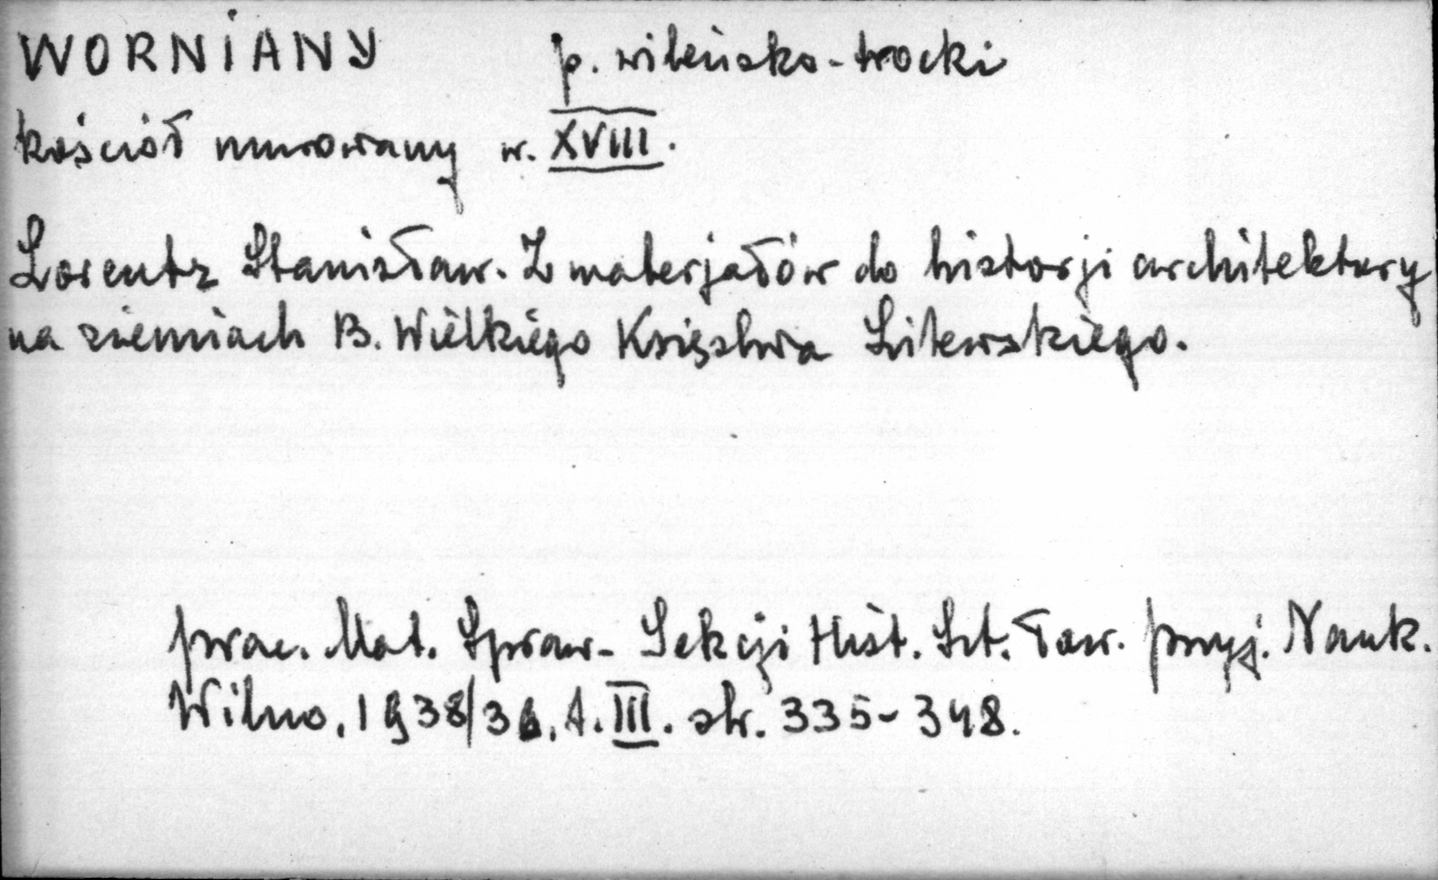 WORNIANY p. wileńsko-trocki
kościół murowany w. XVIII.
Lorentz Stanisław. Z materjałów do historji architektury
na ziemiach B. Wielkiego Księstwa Litewskiego.
prac. Mat. Spraw- Sekcji Hist. Szt. Tow. przyj. Nauk.
Wilno, 1938/39, t. III. str. 335-348.